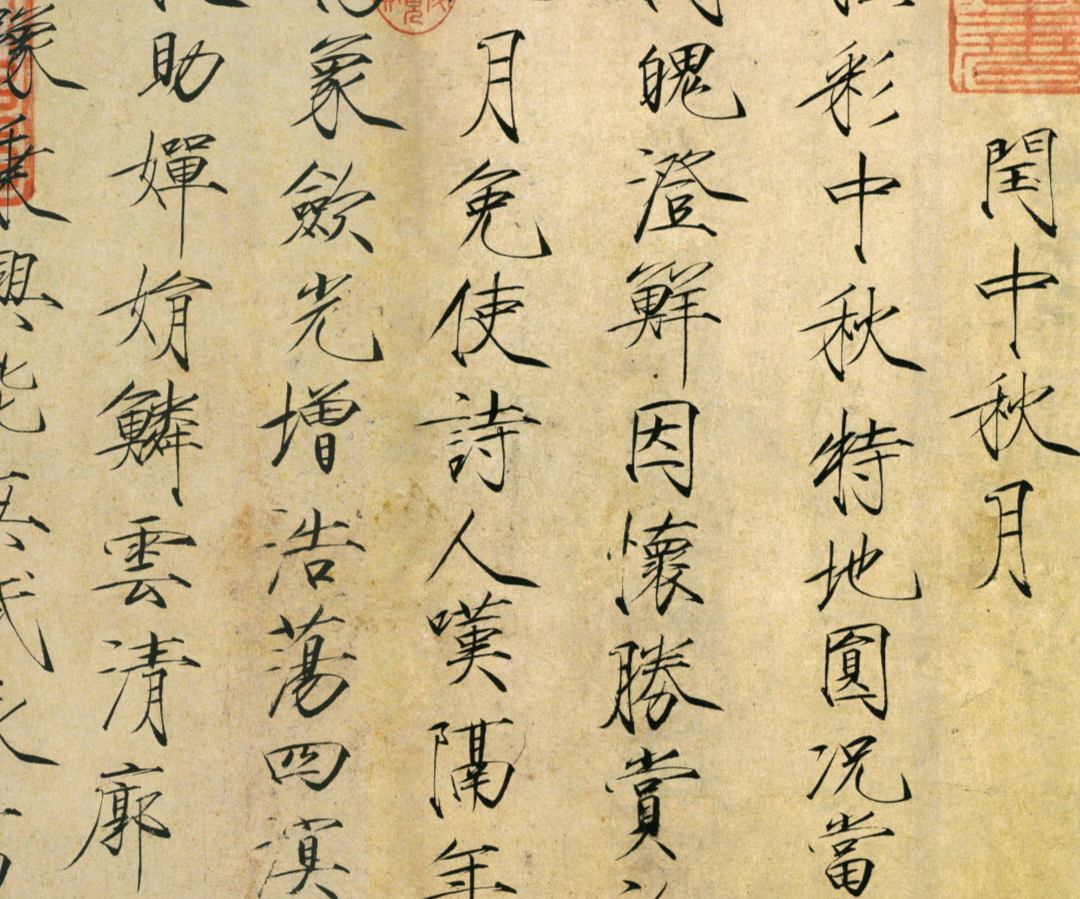 閏中秋月
彩中秋特地圓況當
魄澄鮮因懷勝賞
月免使詩人嘆隔年
象歛光增浩蕩四溟
助嬋娟鱗雲清廓
豫乘興能